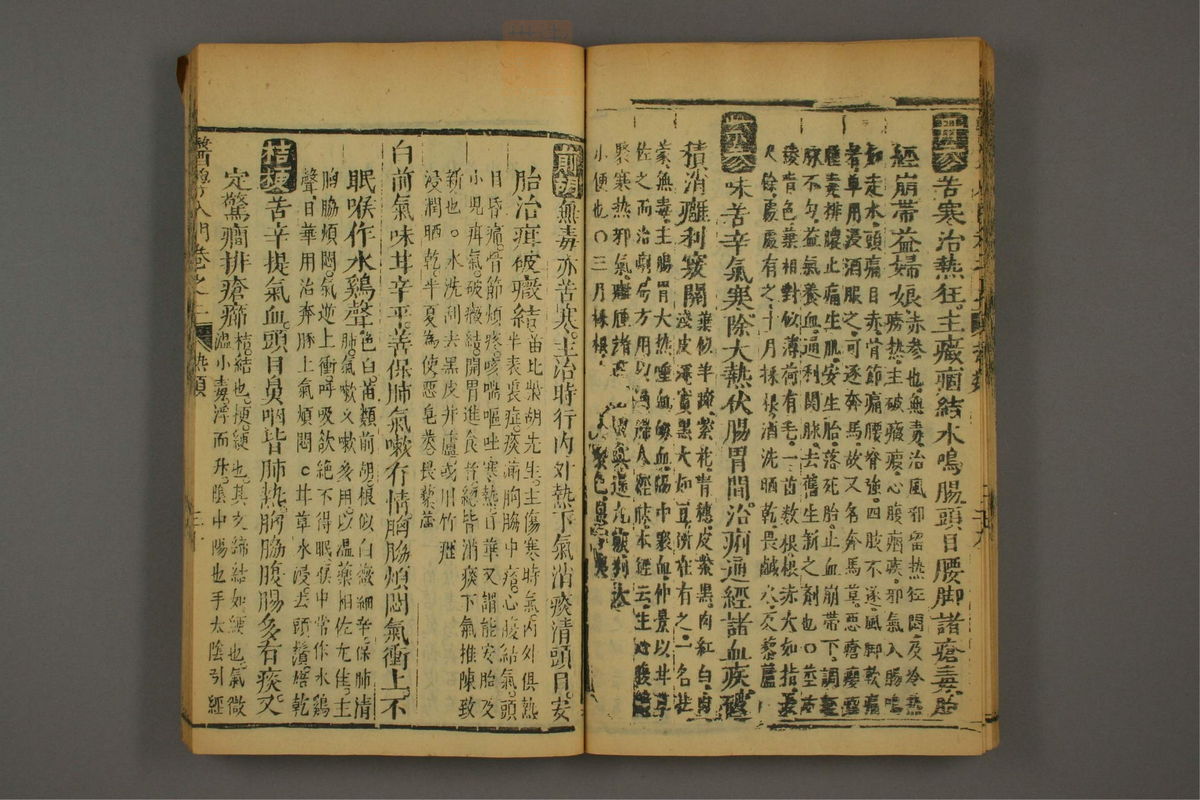 苦寒治熱狂主癥瘕結水鳴腸頭目腰脚諸瘡毒胎
經崩帶益婦娘赤參也無毒治風邪留熱狂悶及冷熱
勞熱主破癥瘕心腹痼疾邪氣入腸鳴
如走水頭痛目赤骨節痛腰脊強四肢不遂風脚軟痛
者單用浸酒服之可逐奔馬故又名奔馬草惡瘡癭瘤
腫毒排膿止痛生肌安生胎落死胎止血崩帶下調
脉不勻益氣養血通利關脉去舊生新之劑也○莖方
稜青色葉相對似薄荷有毛一苗數根根赤大如指長
尺餘處處有之十月採根酒洗晒乾畏鹹水反藜蘆
味苦辛氣寒除大熱伏腸胃間治痢通經諸血疾破
積消癰利竅關葉似羊蹄紫花青穗皮紫黑肉紅白肉
淺皮深實黑大如豆所在有之一名牡
蒙無毒主腸胃大熱唾血衂血腸中聚血仲景以甘草
佐之而治痢
聚寒熱邪氣癰腫諸瘡
小便也○三月採根
前胡 無毒亦苦寒主治時行內外熱下氣消痰清頭目安
胎治疳破癥結苗比柴胡先生主傷寒時氣內外俱熱
半表裏症痰滿胸脇中痞心腹結氣頭
目昏痛骨節煩疼咳喘嘔吐寒熱日華又謂能安胎及
小兒疳氣破癥結開胃進食皆消痰下氣推陳致
新也○水洗刮去黑皮并蘆或用竹瀝
浸潤晒乾半夏為使惡皂莢畏藜蘆
白前氣味甘辛平善保肺氣嗽有情胸脇煩悶氣衝上不
眠喉作水鷄聲色白苗類前胡根似白薇細辛保肺清
肺氣嗽久嗽多用以溫藥相佐尤佳主
胸脇煩悶氣逆上衝呼吸欲絕不得眠喉中常作水鷄
聲日華用治奔豚上氣煩悶○甘草水浸去頭鬚焙乾
桔梗 苦辛提氣血頭目鼻咽皆肺熱胸脇腹腸多有痰又
定驚癎排瘡癤桔結也梗綆也其文締結如綆也氣微
溫小毒浮而升陰中陽也手太陰引經
醫學入門卷之二 熱類